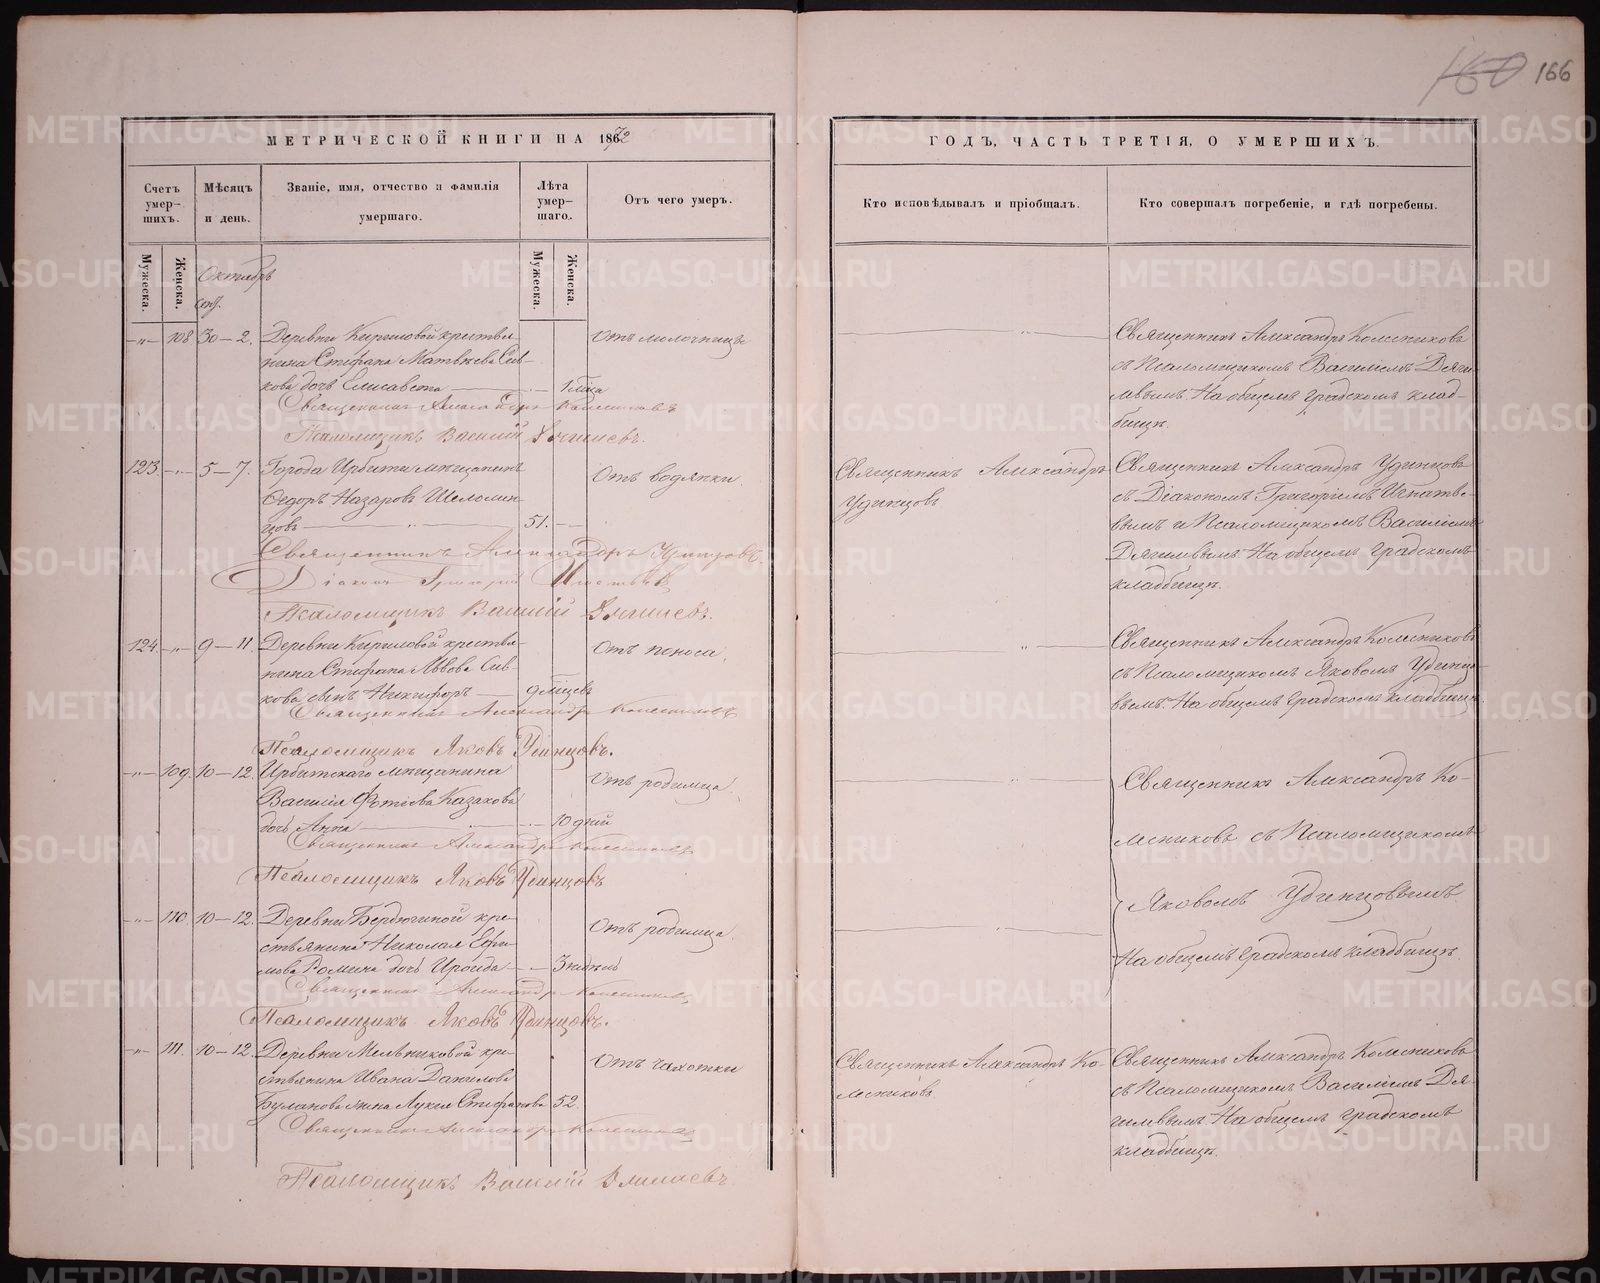 160 166
МЕТРИЧЕСКОЙ КНИГИ НА 1872
ГОДЪ, ЧАСТЬ ТРЕТІЯ, О УМЕРШИХЪ.
Счетъ умер-шихъ.
Мѣсяцъ и день.
Званіе, имя, отчество и фамилія умершаго.
Лѣта умер-шаго.
Отъ чего умеръ.
Кто исповѣдывалъ и пріобщалъ.
Кто совершалъ погребеніе, и гдѣ погребены.
Мужеска. Женска.
Мужеска. Женска.
Октябрь
сент.
108 30-2. Деревни Кириловой крестья-
нина Стефана Матвѣева Сив-
кова дочь Елисавета
Отъ молочницы
Священникъ Александръ Колесниковъ
Псаломщикъ Василій
Священникъ Александръ Колесниковъ
съ Псаломщикомъ Василіемъ Дяги-
левымъ. На общемъ градскомъ клад-
бищѣ.
123. 5-7. Города Ирбити мѣщанинъ
Ѳедоръ Назаровъ Шеломен-
цовъ 51.
Отъ водянки.
Священникъ Александръ Удинцовъ.
Діаконъ Григорій Игнатьевъ
Псаломщикъ Василій
Священникъ Александръ
Удинцовъ
Священникъ Александръ Удинцовъ
съ Діакономъ Григоріемъ Игнатье-
вымъ и Псаломщикомъ Василіемъ
Дягилевымъ. На общемъ градскомъ
кладбищѣ.
124. 9-11. Деревни Кириловой крестья-
нина Стефана Львова Сив-
кова сынъ Никифоръ 9 мѣсцевъ
Отъ поноса.
Священникъ Александръ Колесниковъ
Псаломщикъ Яковъ Удинцовъ.
Священникъ Александръ Колесниковъ
съ Псаломщикомъ Яковомъ Удинцо-
вымъ. На общемъ градскомъ кладбищѣ.
109. 10-12. Ирбитскаго мѣщанина
Василія Фотіева Казакова
дочь Анна 10 дней
Отъ родимца.
Священникъ Александръ Колесниковъ
Псаломщикъ Яковъ Удинцовъ
Священникъ Александръ Ко-
лесниковъ съ Псаломщикомъ
Яковомъ Удинцовымъ.
На общемъ градскомъ кладбищѣ.
110. 10-12. Деревни Бердюгиной кре-
стьянина Николая Ефи-
мова Ромина дочь Ироида 3 недѣль
Отъ родимца.
Священникъ Александръ Колесниковъ
Псаломщикъ Яковъ Удинцовъ.
111. 10-12. Деревни Мельниковой кре-
стьянина Ивана Данилова
Буланова жена Лукія Стефанова 52.
Отъ чахотки
Священникъ Александръ Колесниковъ
Псаломщикъ Василій
Священникъ Александръ Ко-
лесниковъ.
Священникъ Александръ Колесниковъ
съ Псаломщикомъ Василіемъ Дя-
гилевымъ. На общемъ градскомъ
кладбищѣ.
METRIKI.GASO-URAL.RU